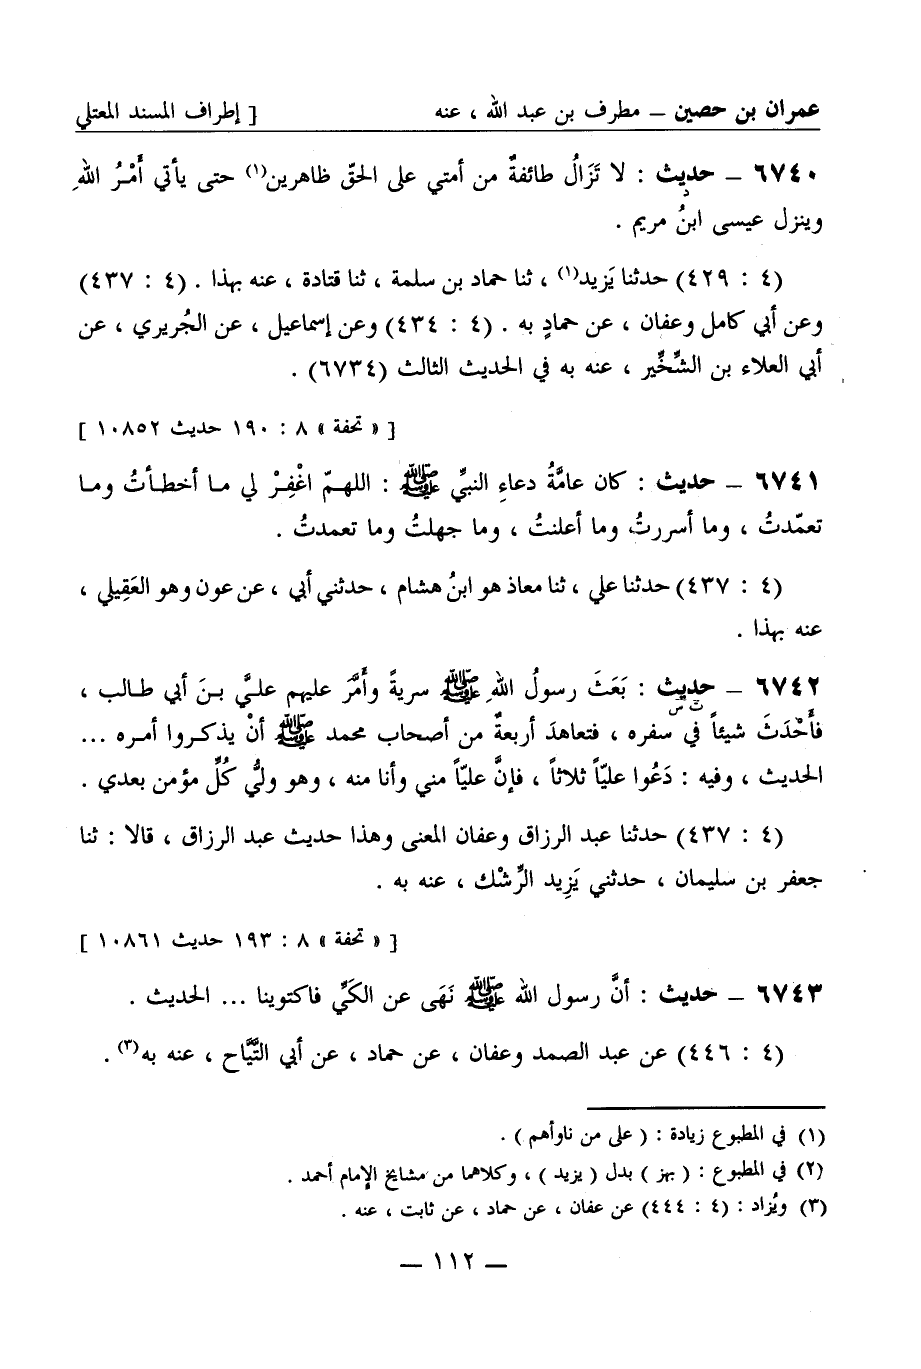 عمران بن حصين ــ مطرف بن عبد الله ، عنه [ إطراف المسند المعتلي
٦٧٤٠ ــ حديث : لا تَزَالُ طائفةٌ من أمتي على الحقّ ظاهرين(١) حتى يأتي أَمْرُ اللهِ
د
وينزل عيسى ابنُ مريم .
(٤ : ٤٢٩) حدثنا يَزيد(١) ، ثنا حماد بن سلمة ، ثنا قتادة ، عنه بهذا . (٤ : ٤٣٧)
وعن أبي كامل وعفان ، عن حمادٍ به . (٤ : ٤٣٤) وعن إسماعيل ، عن الجُريري ، عن
أبي العلاء بن الشِّخِّير ، عنه به في الحديث الثالث (٦٧٣٤) .
[ « تحفة » ٨ : ١٩٠ حديث ١٠٨٥٢ ]
٦٧٤١ ــ حديث : كان عامَّةُ دعاءِ النبيِّ ﷺ : اللهمّ اغْفِرْ لي ما أخطأتُ وما
تعمّدتُ ، وما أسررتُ وما أعلنتُ ، وما جهلتُ وما تعمدتُ .
(٤ : ٤٣٧) حدثنا علي ، ثنا معاذ هو ابنُ هشام ، حدثني أبي ، عن عون وهو العَقِيلي ،
عنه بهذا .
٦٧٤٢ ــ حديث : بَعَثَ رسولُ اللهِ ﷺ سريةً وأَمَّرَ عليهم عليَّ بنَ أبي طالب ،
ت س
فأَحْدَثَ شيئاً في سفره ، فتعاهدَ أربعةٌ من أصحاب محمد ﷺ أنْ يذكروا أمره ...
الحديث ، وفيه : دَعُوا عليّاً ثلاثاً ، فإنَّ عليّاً مني وأنا منه ، وهو وليُّ كُلِّ مؤمن بعدي .
(٤ : ٤٣٧) حدثنا عبد الرزاق وعفان المعنى وهذا حديث عبد الرزاق ، قالا : ثنا
جعفر بن سليمان ، حدثني يَزِيد الرِّشْك ، عنه به .
[ « تحفة » ٨ : ١٩٣ حديث ١٠٨٦١ ]
٦٧٤٣ ــ حديث : أنَّ رسول الله ﷺ نَهَى عن الكَيِّ فاكتوينا ... الحديث .
(٤ : ٤٤٦) عن عبد الصمد وعفان ، عن حماد ، عن أبي التَّيَّاح ، عنه به(٣) .
(١) في المطبوع زيادة : ( على من ناوأهم ) .
(٢) في المطبوع : ( بهز ) بدل ( يزيد ) ، وكلاهما من مشايخ الإمام أحمد .
(٣) ويُزاد : (٤ : ٤٤٤) عن عفان ، عن حماد ، عن ثابت ، عنه .
ــ ١١٢ ــ